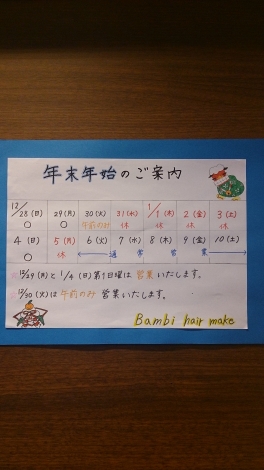 年末年始のご案内
12/28(日) 29(月) 30(火) 31(水) 1/1(木) 2(金) 3(土)
○ ○ 午前のみ 休 休 休 休
4(日) 5(月) 6(火) 7(水) 8(木) 9(金) 10(土)
○ 休 ← 通常営業 →
12/29(月)と1/4(日)第1日曜は営業いたします。
12/30(火)は午前のみ営業いたします。
Bambi hair make